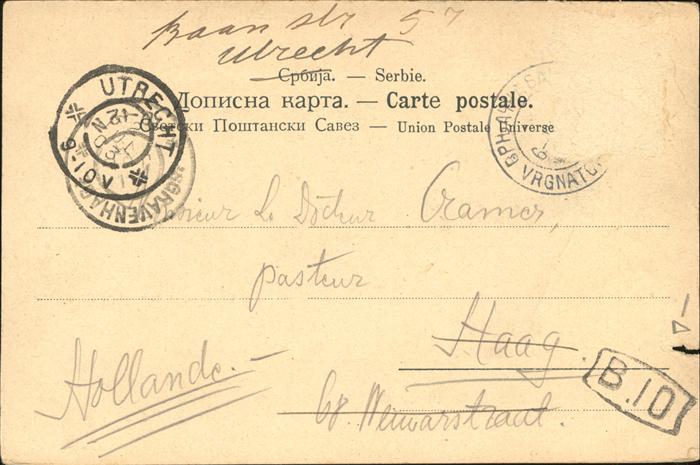 Baan str 57
Utrecht
Србија. — Serbie.
Дописна карта. — Carte postale.
Светски Поштански Савез — Union Postale Universe
UTRECHT
GRAVENHAG
VRGNATC
Monsieur Le Docteur Cramer,
pasteur
Haag
Hollande.
68. Weimarstraat.
B.10